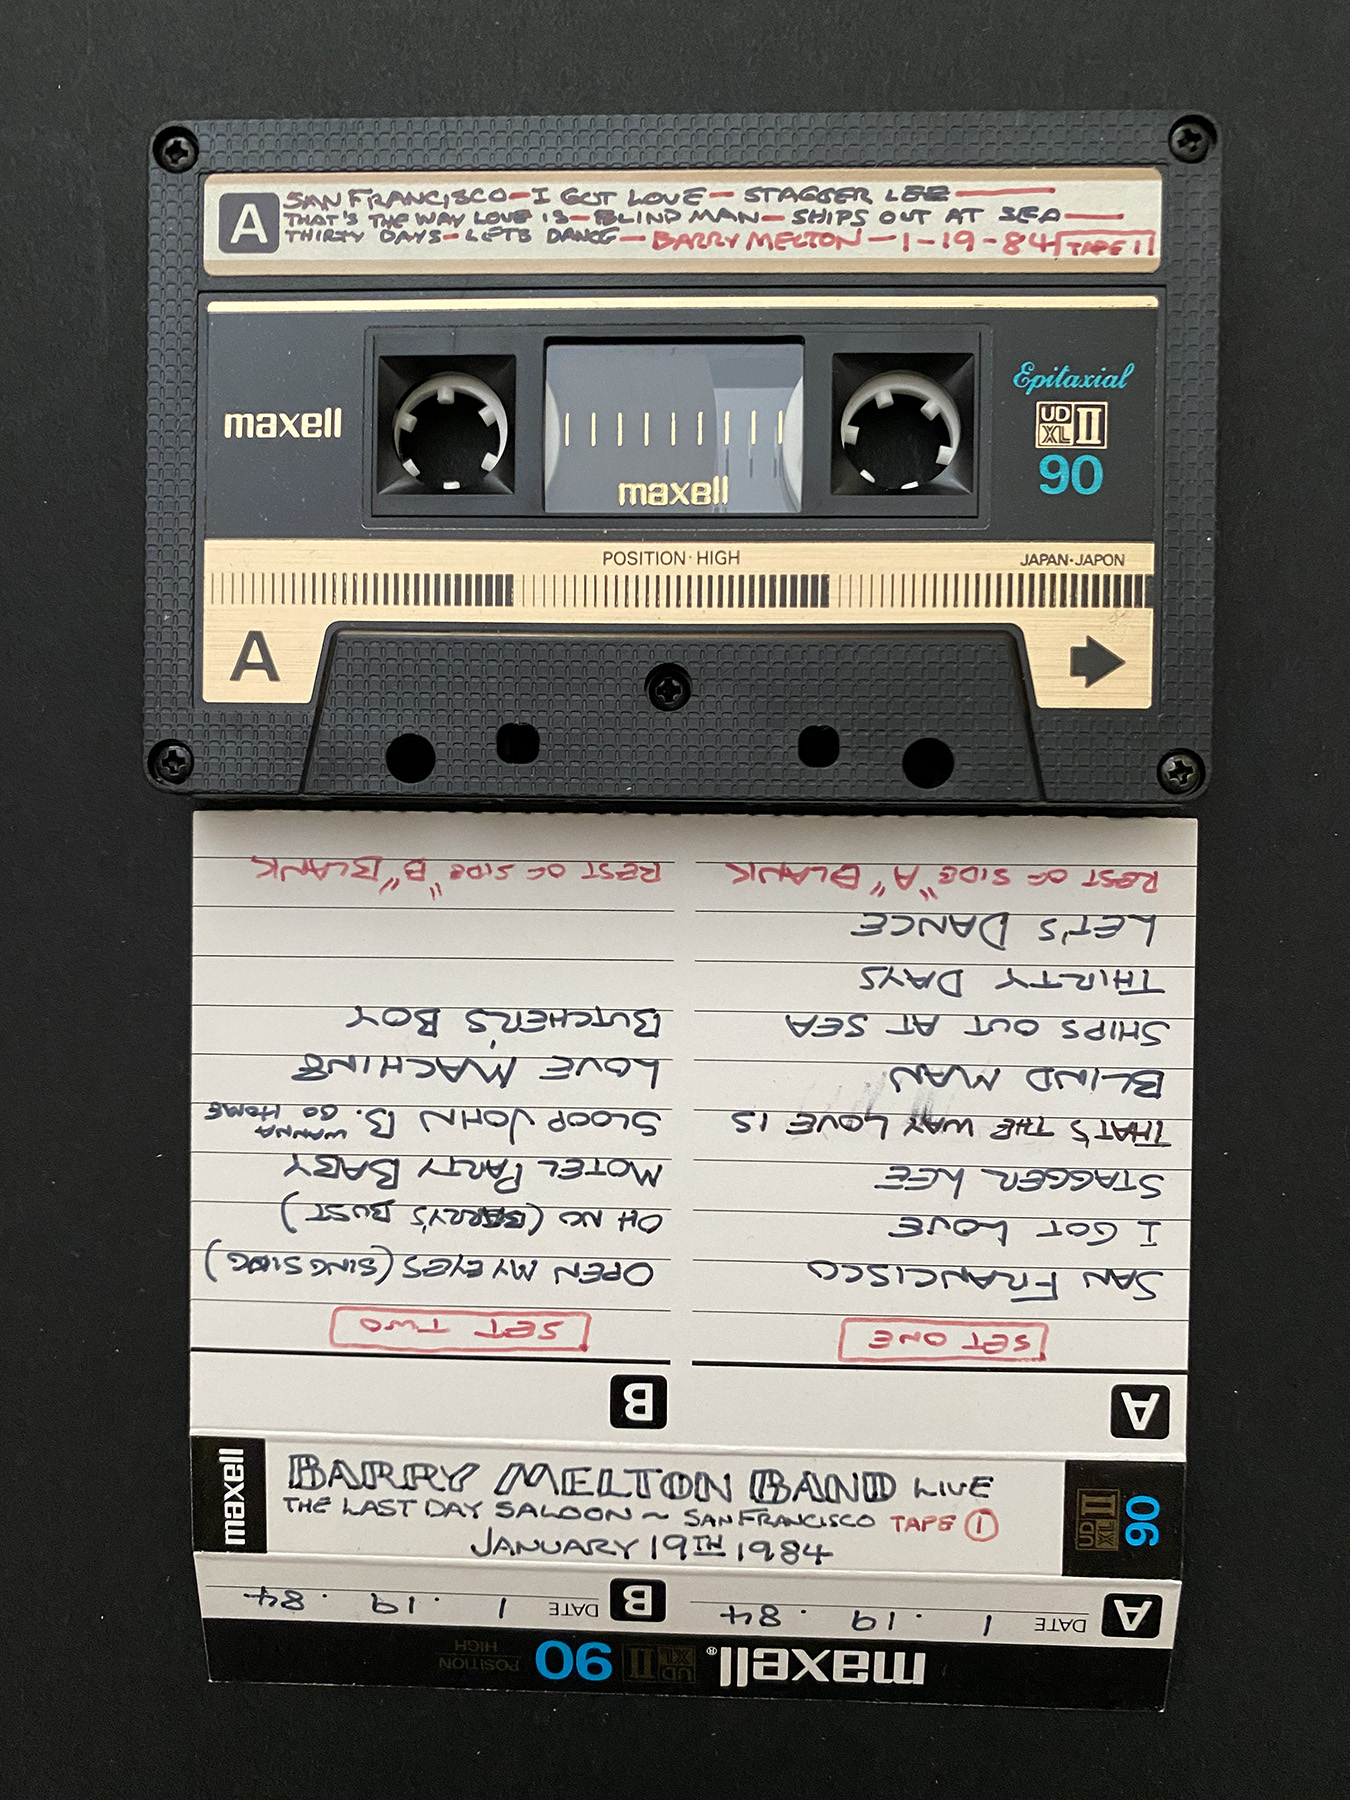 A
SAN FRANCISCO — I GOT LOVE — STAGGER LEE —
THAT'S THE WAY LOVE IS — BLIND MAN — SHIPS OUT AT SEA —
THIRTY DAYS — LETS DANCE — BARRY MELTON — 1-19-84 TAPE 1
maxell
maxell
Epitaxial
UD XL II
90
POSITION·HIGH
JAPAN·JAPON
A
maxell® UD XL II 90 POSITION HIGH
A DATE 1 . 19 . 84
B DATE 1 . 19 . 84
maxell
BARRY MELTON BAND LIVE
THE LAST DAY SALOON ~ SAN FRANCISCO TAPE 1
JANUARY 19TH 1984
UD XL II 90
A
SET ONE
SAN FRANCISCO
I GOT LOVE
STAGGER LEE
THAT'S THE WAY LOVE IS
BLIND MAN
SHIPS OUT AT SEA
THIRTY DAYS
LET'S DANCE
REST OF SIDE "A" BLANK
B
SET TWO
OPEN MY EYES (SING SING)
OH NO (BARRY'S BUST)
MOTEL PARTY BABY
SLOOP JOHN B. WANNA GO HOME
LOVE MACHINE
BUTCHER'S BOY
REST OF SIDE "B" BLANK